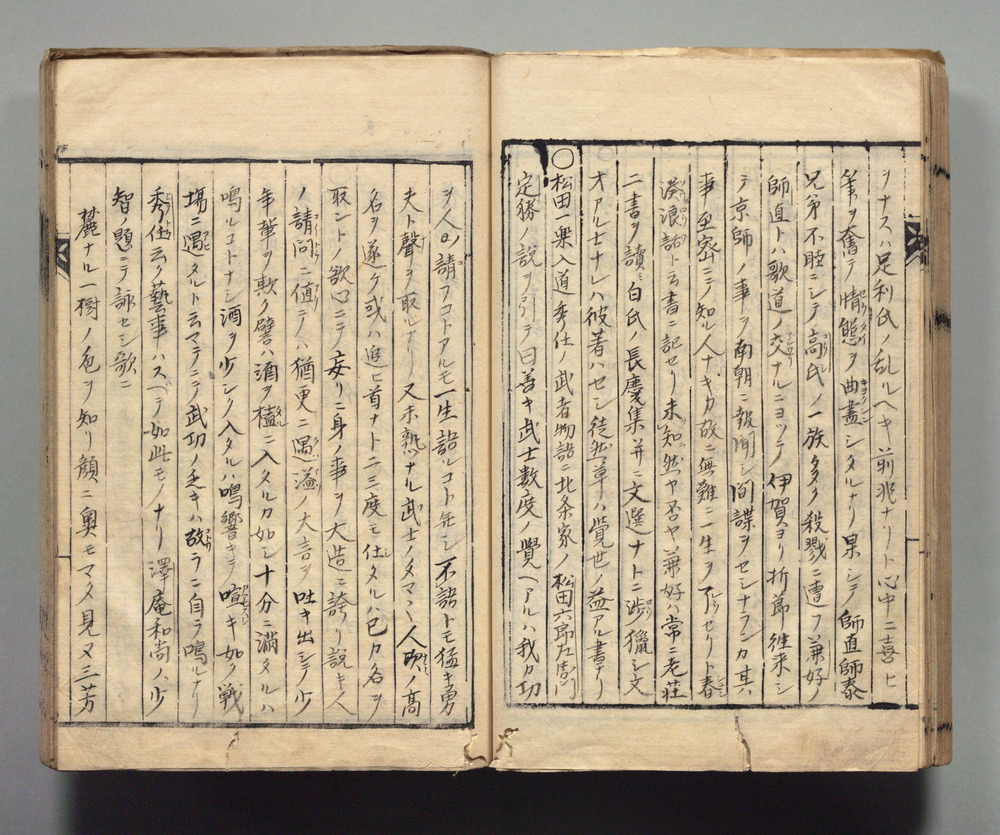 ヲナスハ足利氏ノ乱ルヘキ前兆ナリト心中ニ喜ヒ
筆ヲ奮テ情態ヲ曲畫シタルナリ果シテ師直師泰
兄弟不睦ニシテ高氏ノ一族多ク殺戮ニ遭フ兼好ノ
師直トハ歌道ノ交ナルニヨツテ伊賀ヨリ折節徃来シ
テ京師ノ事ヲ南朝ニ報聞シ間諜ヲセシナランカ其
事至密ニシテ知ル人ナキカ故ニ無難ニ一生ヲ下セリト春
湊浪話ト云書ニ記セリ未知然ヤ否ヤ兼好ハ常ニ老荘
二書ヲ讀ミ白氏ノ長慶集并ニ文選ナトニ渉獵シ文
オアル士ナレハ彼著ハセシ徒然草ハ覺世ノ益アル書ナリ
〇松田一樂入道秀仕ノ武者物語ニ北条家ノ松田六郎左衛門
定勝ノ説ヲ引テ曰善キ武士数度ノ覺ヘアルハ我カ功
ヲ人ノ請フコトアルモ一生語ルコト无シ不語トモ猛キ勇
夫ト聲ヲ取ルナリ又未熟ナル武士ノタマ〻人並ノ高
名ヲ遂ケ或ハ追ヒ首ナト二三度モ仕タルハ已カ名ヲ
取ントノ欲心ニテ妄リニ身ノ事ヲ大造ニ誇リ説キ人
ノ請問ニ値テハ猶更ニ過溢ノ大言ヲ吐キ出シテ少
年輩ヲ欺ク譬ハ酒ヲ樽ニ入タルカ如シ十分ニ滿タルハ
鳴ルコトナシ酒ヲ少シク入タルハ鳴響キテ喧キ如ク戦
塲ニ遇タルト云マテニテ武功ノ乏キハ故ラニ自ラ鳴ルナリ
秀仕云ク藝事ハスベテ如此モノナリ澤庵和尚ノ少
智ノ題ニテ詠セシ歌ニ
麓ナル一樹ノ色ヲ知リ顔ニ奥モマタ見ヌ三芳